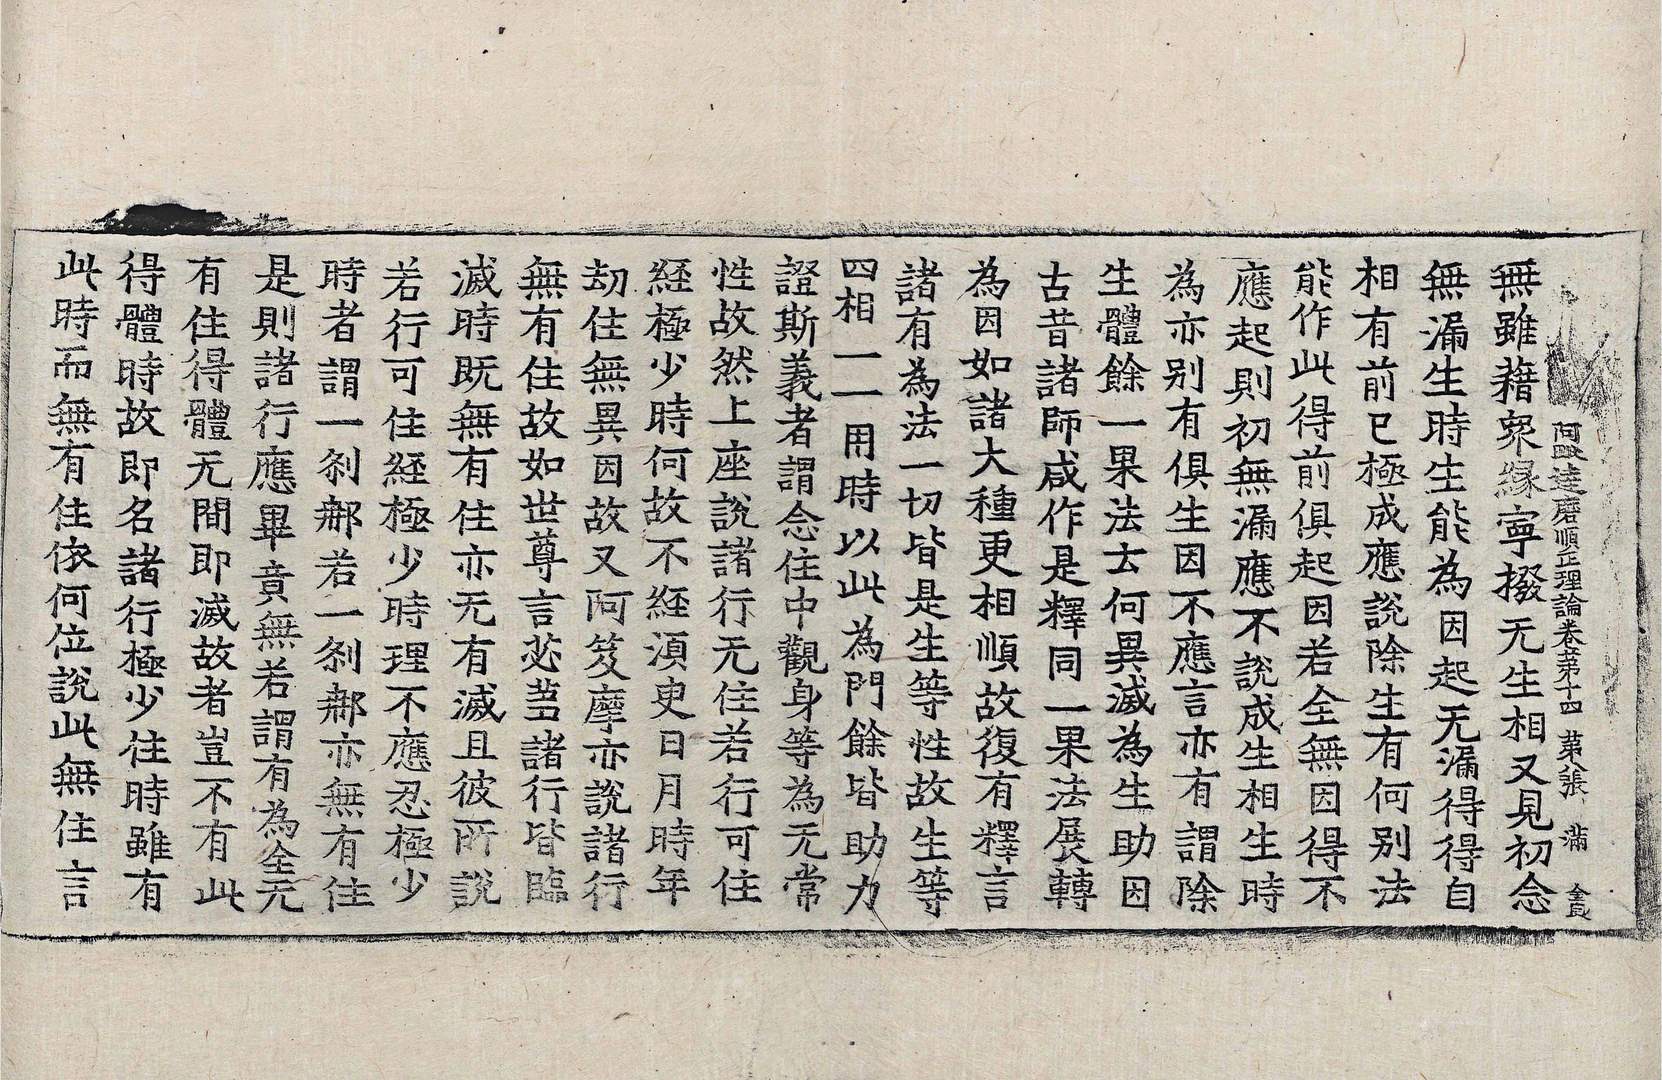 阿毗達磨順正理論卷第十四 第八張 滿 金良
無雖藉衆緣寧撥无生相又見初念
無漏生時生能為因起无漏得得自
相有前已極成應說除生有何別法
能作此得前俱起因若全無因得不
應起則初無漏應不說成生相生時
為亦別有俱生因不應言亦有謂除
生體餘一果法去何異滅為生助因
古昔諸師咸作是釋同一果法展轉
為因如諸大種更相順故復有釋言
諸有為法一切皆是生等性故生等
四相一一用時以此為門餘皆助力
證斯義者謂念住中觀身等為无常
性故然上座說諸行无住若行可住
經極少時何故不經湏臾日月時年
劫住無異因故又阿笈摩亦說諸行
無有住故如世尊言苾芻諸行皆臨
滅時既無有住亦无有滅且彼所說
若行可住經極少時理不應忍極少
時者謂一刹那若一刹那亦無有住
是則諸行應畢竟無若謂有為全无
有住得體无間即滅故者豈不有此
得體時故即名諸行極少住時雖有
此時而無有住依何位說此無住言